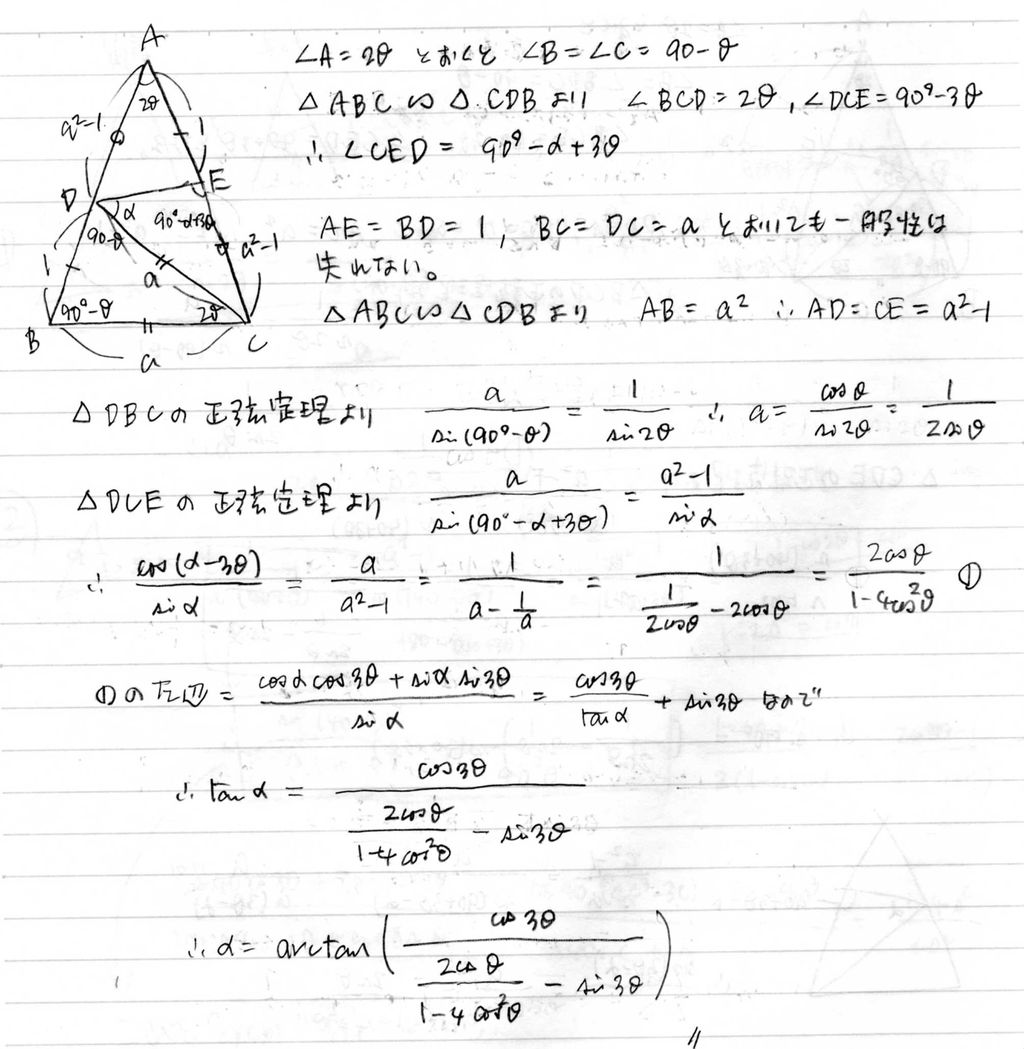 A
2θ
a²-1
1
D
E
α
90°-α+3θ
90-θ
a²-1
1
a
90°-θ
2θ
B
C
a
∠A=2θ とおくと ∠B=∠C=90-θ
△ABC∽△CDBより ∠BCD=2θ, ∠DCE=90°-3θ
∴ ∠CED= 90°-α+3θ
AE=BD=1, BC=DC=a とおいても一般性は
失れない。
△ABC∽△CDBより AB=a² ∴ AD=CE=a²-1
△DBCの正弦定理より a/sin(90°-θ) = 1/sin2θ ∴ a= cosθ/sin2θ = 1/2sinθ
△DCEの正弦定理より a/sin(90°-α+3θ) = a²-1/sinα
∴ cos(α-3θ)/sinα = a/a²-1 = 1/(a-1/a) = 1/(1/2cosθ - 2cosθ) = 2cosθ/1-4cos²θ ①
①の左辺= cosαcos3θ+sinαsin3θ/sinα = cos3θ/tanα + sin3θ なので
∴ tanα = cos3θ/(2cosθ/1-4cos²θ - sin3θ)
∴ α= arctan(cos3θ/(2cosθ/1-4cos²θ - sin3θ))